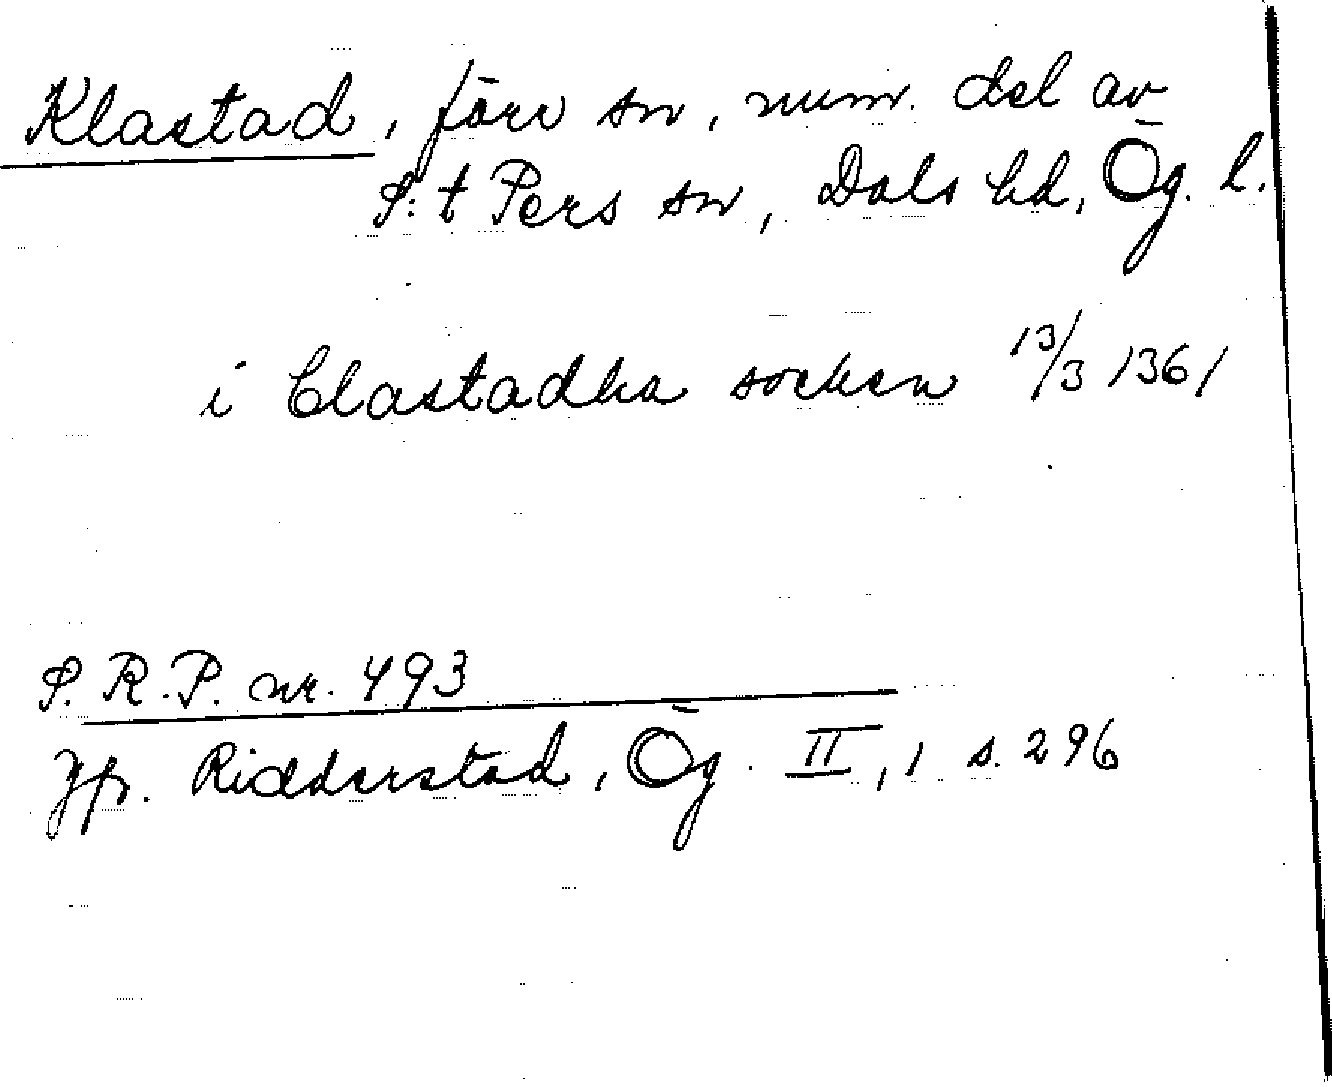 Klastad, förv sn, num. del av
S:t Pers sn, Dals hd, Ög. l.
i Clastadha socken 13/3 1361
S. R. P. nr. 493
Jfr. Ridderstad, Ög. II, 1 s. 296